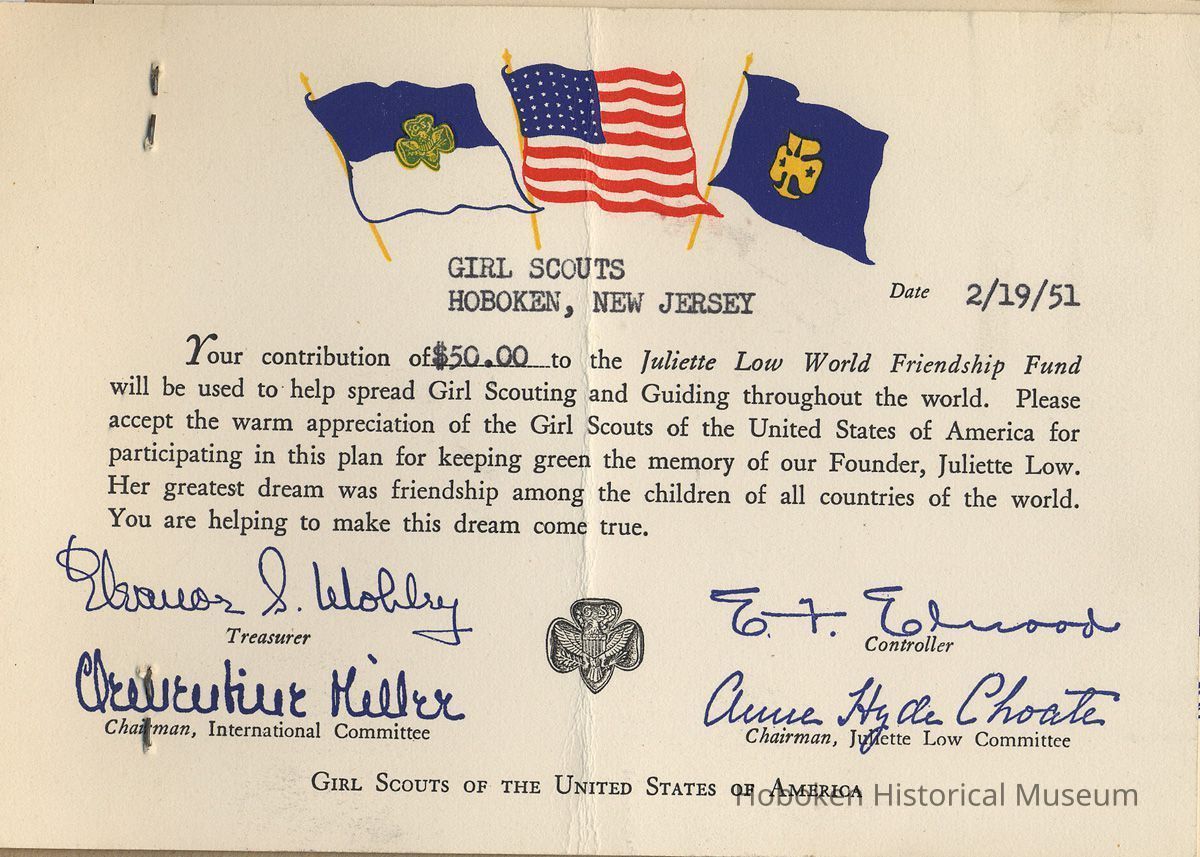 GIRL SCOUTS
HOBOKEN, NEW JERSEY
Date 2/19/51
Your contribution of $50.00 to the Juliette Low World Friendship Fund
will be used to help spread Girl Scouting and Guiding throughout the world. Please
accept the warm appreciation of the Girl Scouts of the United States of America for
participating in this plan for keeping green the memory of our Founder, Juliette Low.
Her greatest dream was friendship among the children of all countries of the world.
You are helping to make this dream come true.
Eleanor S. Wohlry
Treasurer
E. F. Elwood
Controller
GS
Miller
Chairman, International Committee
Anne Hyde Choate
Chairman, Juliette Low Committee
GIRL SCOUTS OF THE UNITED STATES OF AMERICA
Hoboken Historical Museum